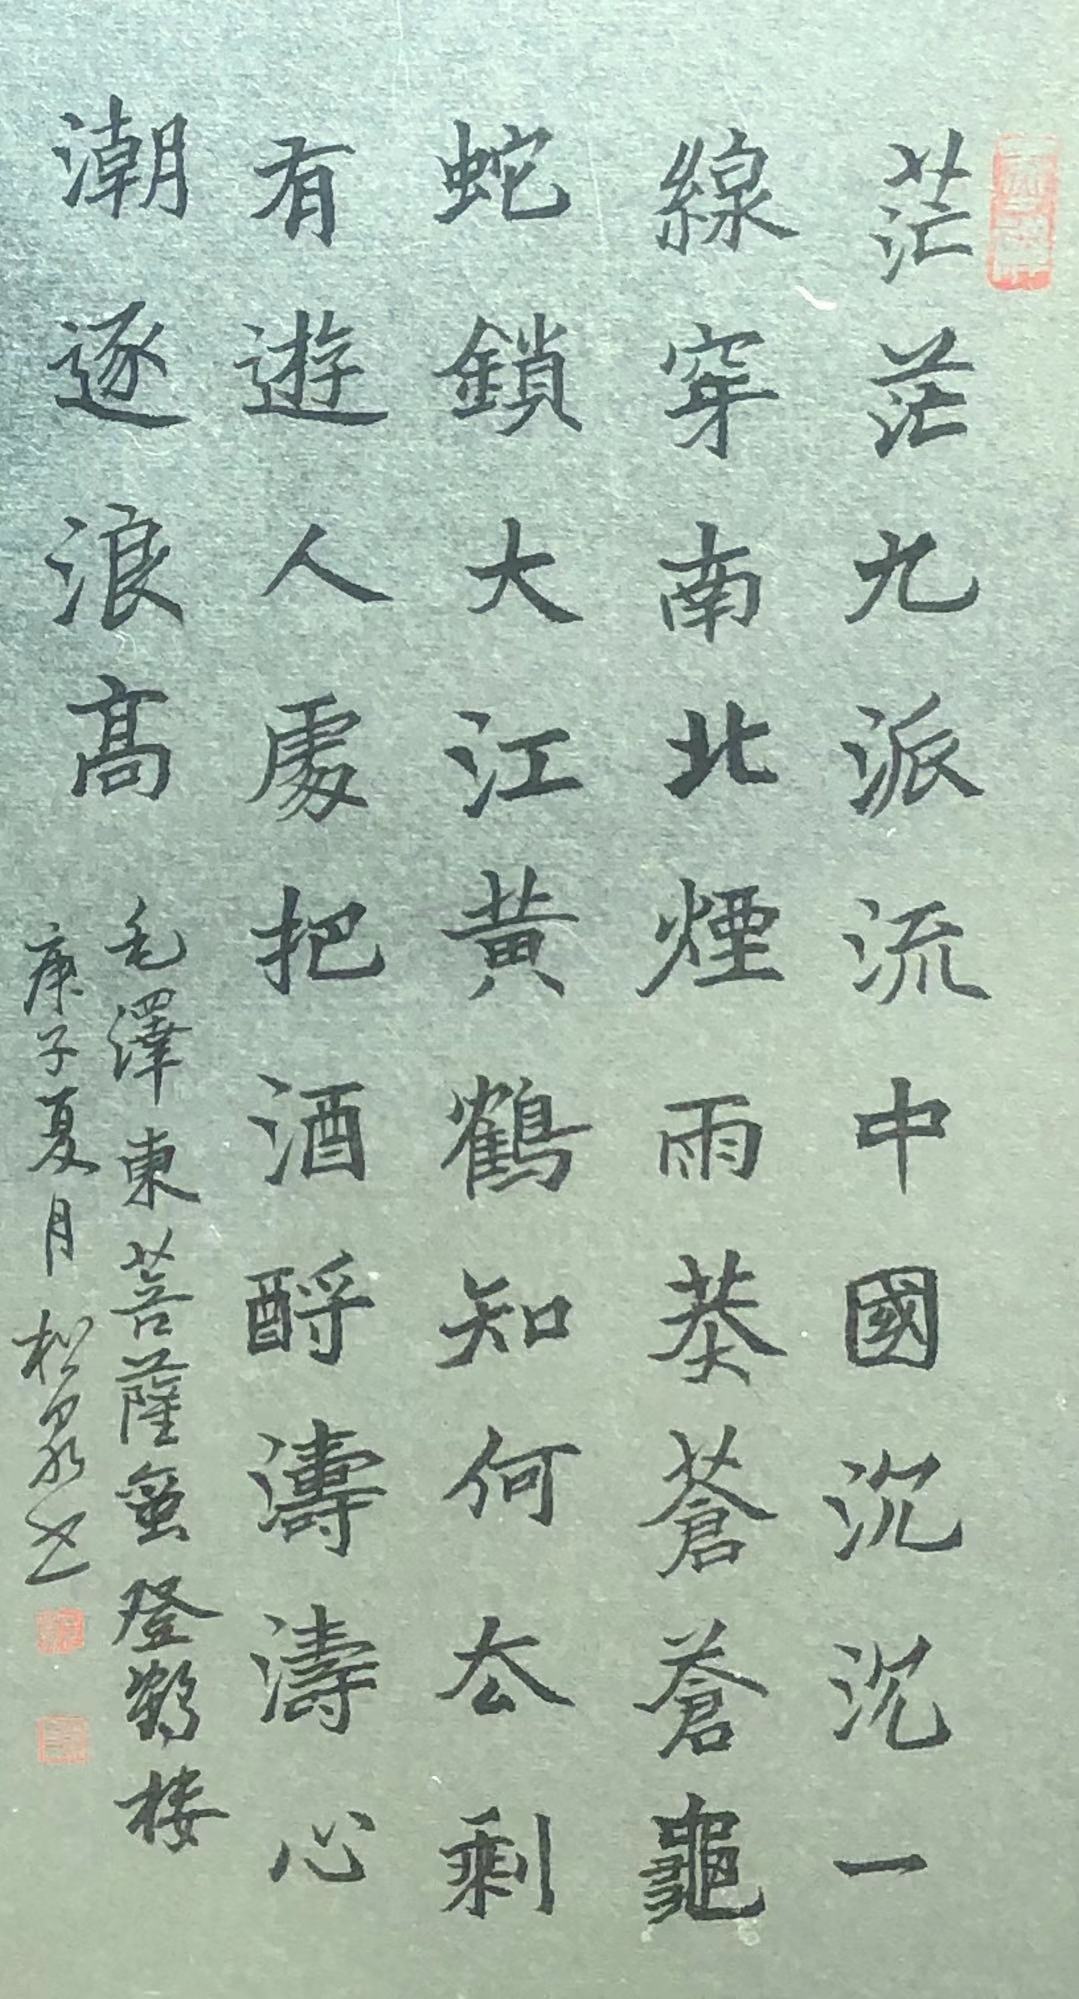 茫茫九派流中國沉沉一
線穿南北煙雨莽蒼蒼龜
蛇鎖大江黄鶴知何去剩
有遊人處把酒酹濤濤心
潮逐浪高
毛澤東菩薩蛮登鹤楼
庚子夏月松泉书